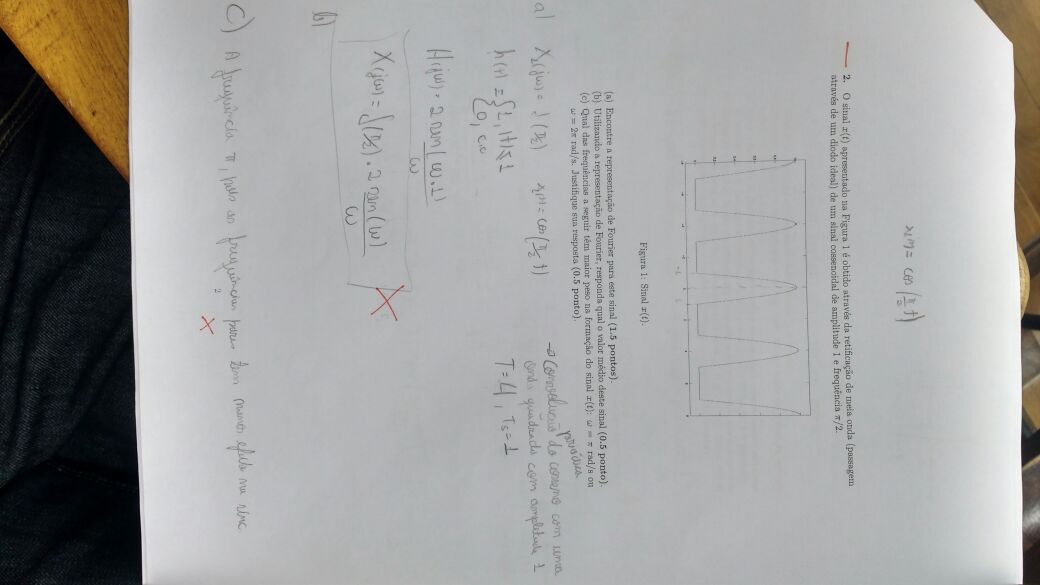 x(t) = cos(π/2 t)
2. O sinal x(t) apresentado na Figura 1 é obtido através da retificação de meia onda (passagem
através de um diodo ideal) de um sinal cossenoidal de amplitude 1 e frequência π/2.
Figura 1: Sinal x(t).
(a) Encontre a representação de Fourier para este sinal (1.5 pontos).
(b) Utilizando a representação de Fourier, responda qual o valor médio deste sinal (0.5 ponto).
(c) Qual das frequências a seguir têm maior peso na formação do sinal x(t): ω = π rad/s ou
ω = 2π rad/s. Justifique sua resposta (0.5 ponto).
a) X₁(jω) = (π/2) x₁(t) = cos(π/2 t)
→ Convolução periódica do cosseno com uma
onda quadrada com amplitude 1
T=4, Ts=1
h(t) = {1, |t|≤1
{0, c.c
H(jω) = 2 sen(ω.1)/ω
X(jω) = ∫(π/2) . 2 sen(ω)/ω
b)
c) A frequência π, pois as frequências pares tem menos efeito na sinc.
2